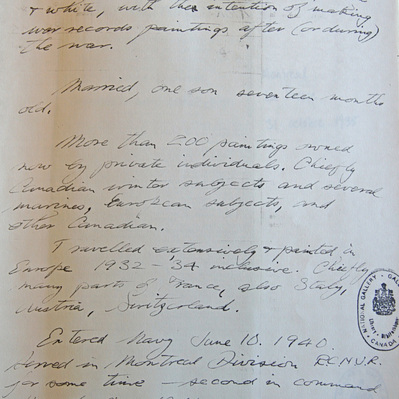 & white, with the intention of making
war records paintings after (or during)
the war.
Married, one son seventeen months
old.
More than 200 paintings owned
now by private individuals. Chiefly
Canadian winter subjects and several
marines, European subjects, and
other Canadian.
I travelled extensively & painted in
Europe 1932-'34 inclusive. Chiefly
many parts of France, also Italy,
Austria, Switzerland.
Entered Navy June 10. 1940.
Served in Montreal Division R.C.N.V.R.
for some time – second in command
NATIONAL GALLERY
CANADA